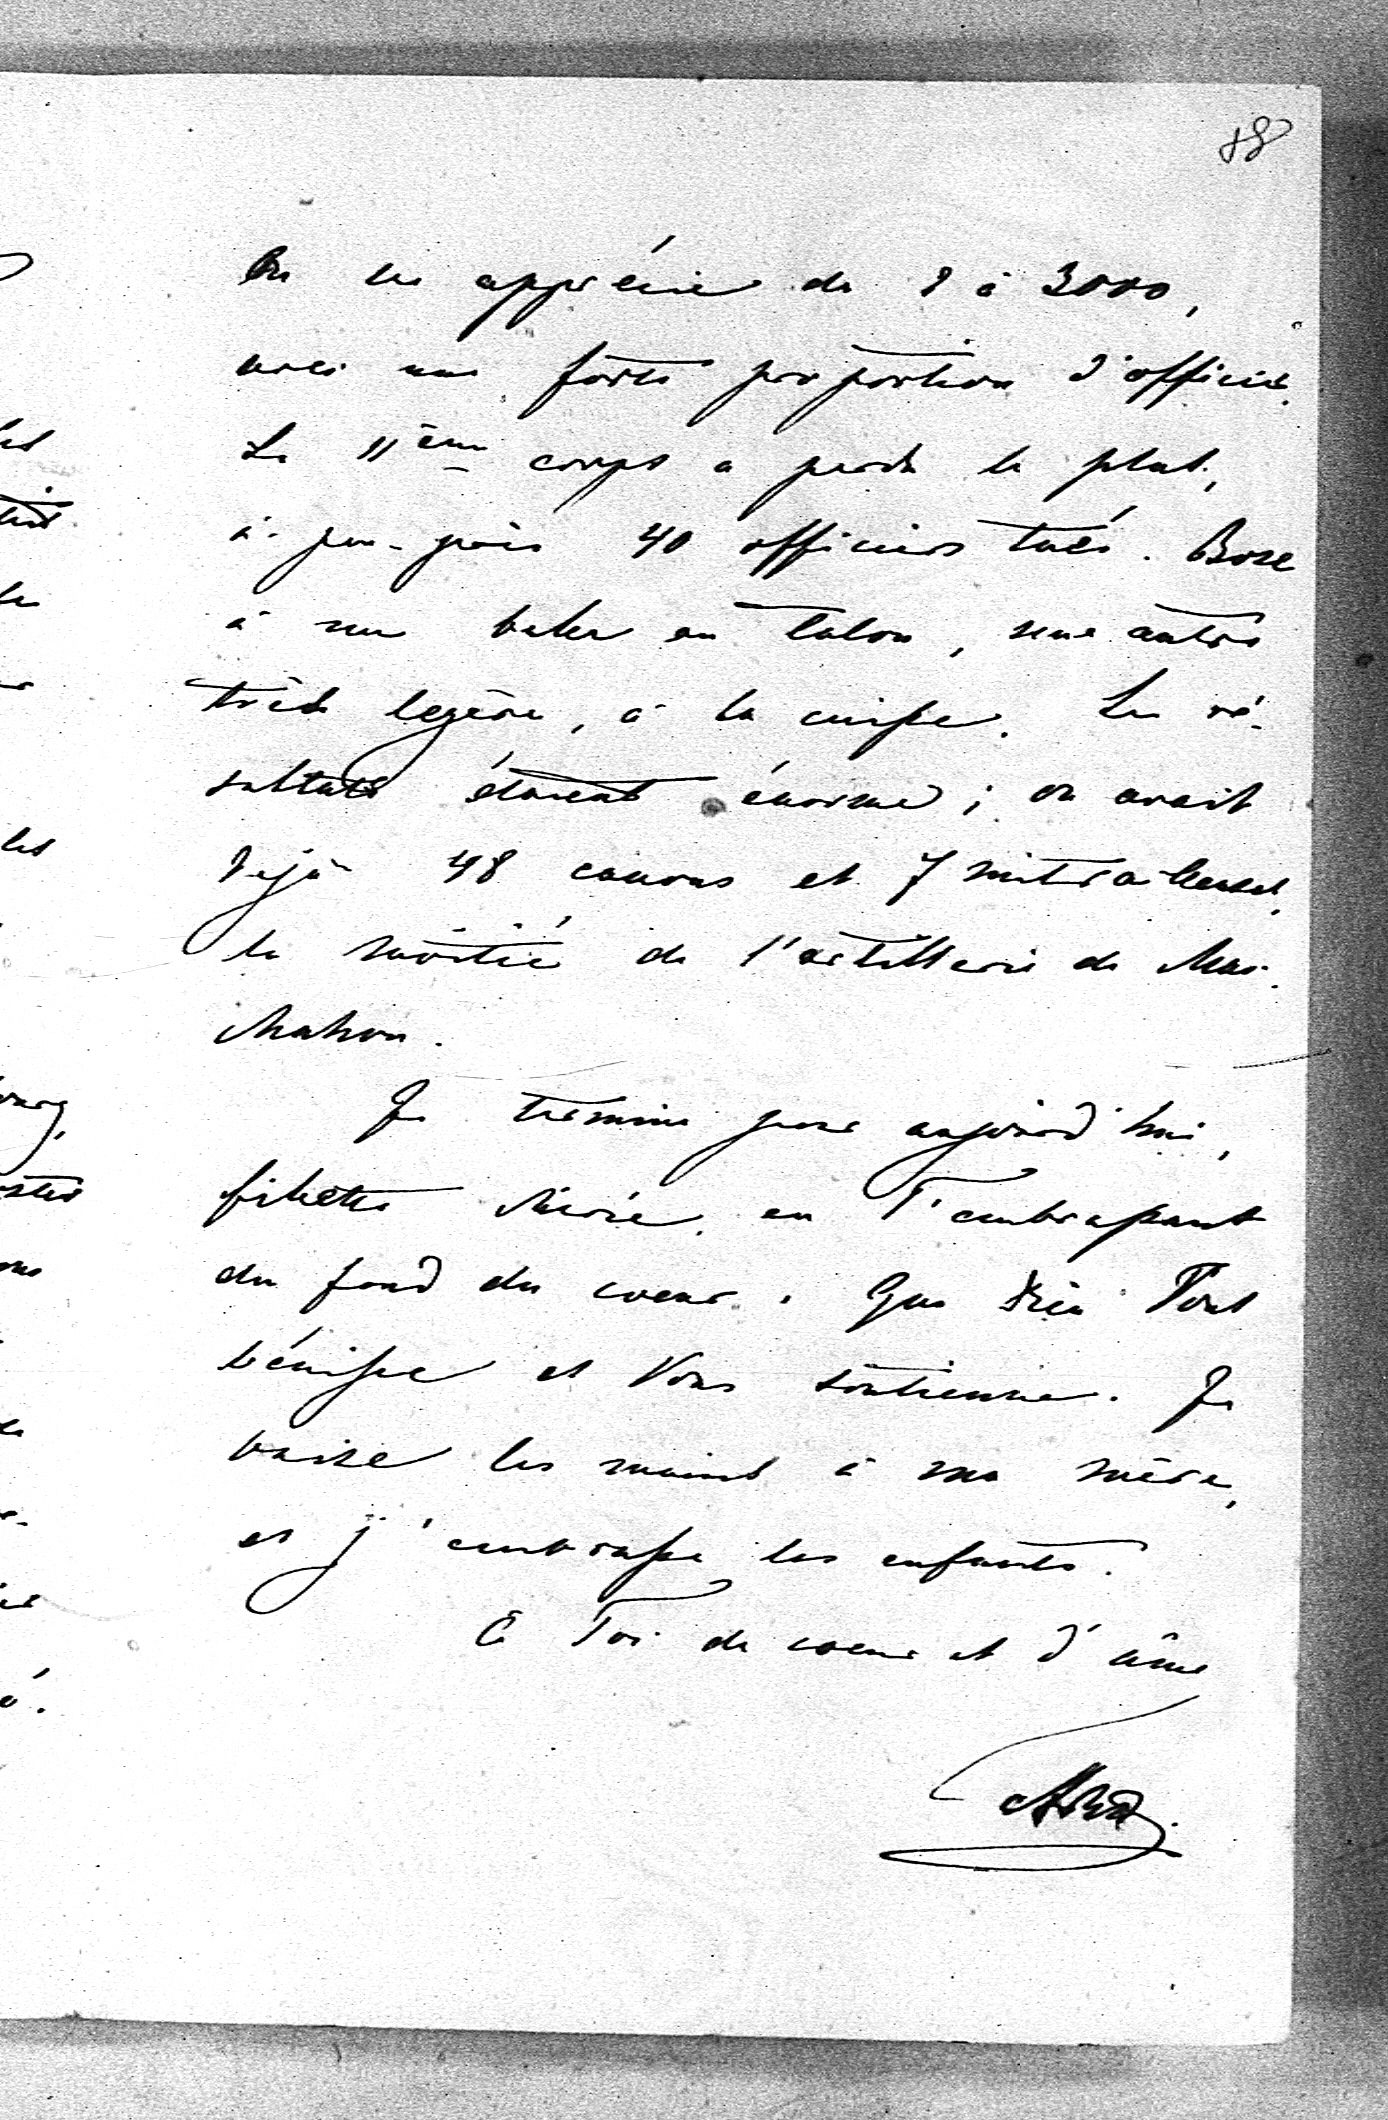 88
On les apprécie de 2 à 3000,
avec une forte proportion d'officiers.
Le 11ème corps a perdu le plus,
à-peu-près 40 officiers tués. Bose
à une balle au talon, une autre
très legère, à la cuisse. Les ré-
sultats étaient énormes; on avait
dejà 48 canons et 7 mitrailleuses,
la moitié de l'artillerie de Mac-
Mahon.
Je termine pour aujourd'hui,
fillette chérie, en T'embrassant
du fond du coeur. Que Dieu Vous
bénisse et Vous soutienne. Je
baise les mains à ma mère,
et j'embrasse les enfants.
à Toi de coeur et d'âme